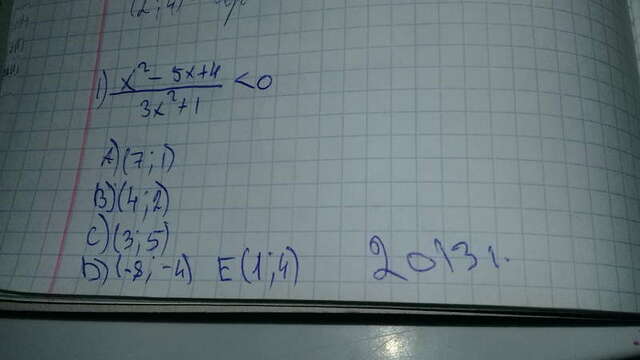 (2; 4)
1) x² - 5x+4 / 3x²+1 < 0
A) (7; 1)
B) (4; 2)
C) (3; 5)
D) (-8; -4) E (1; 4) 2013 г.